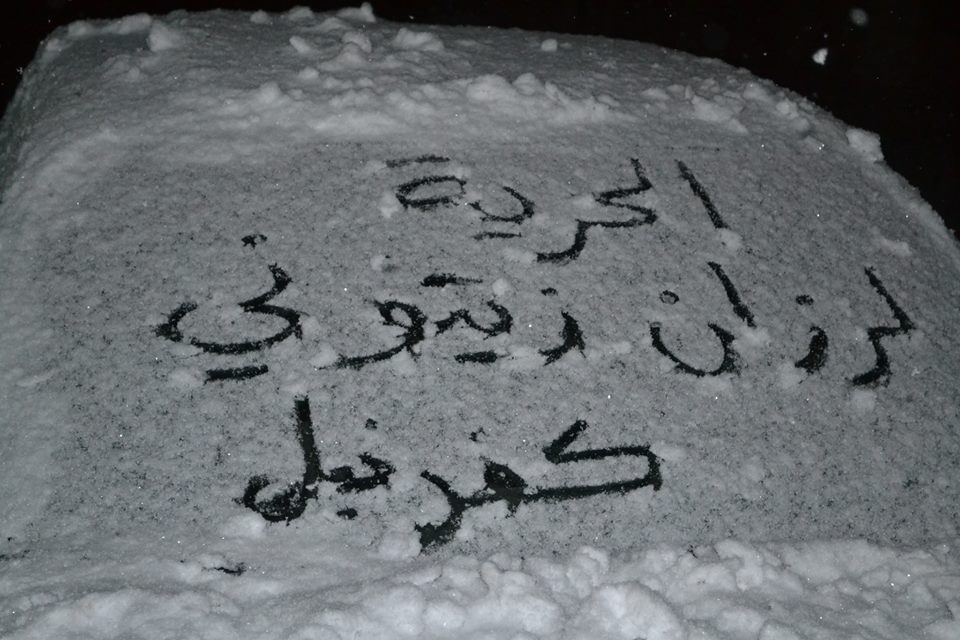 الحرية
لرزان زيتوني
كفرنبل